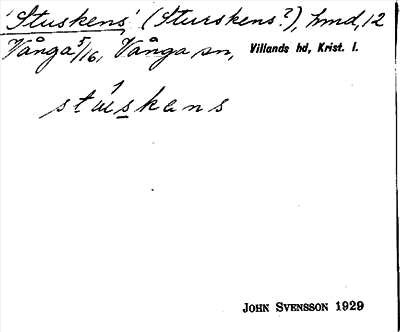 'Stuskens' (Sturskens?), hmd, 12
Vånga 5/16, Vånga sn, Villands hd, Krist. l.
stuskens
JOHN SVENSSON 1929